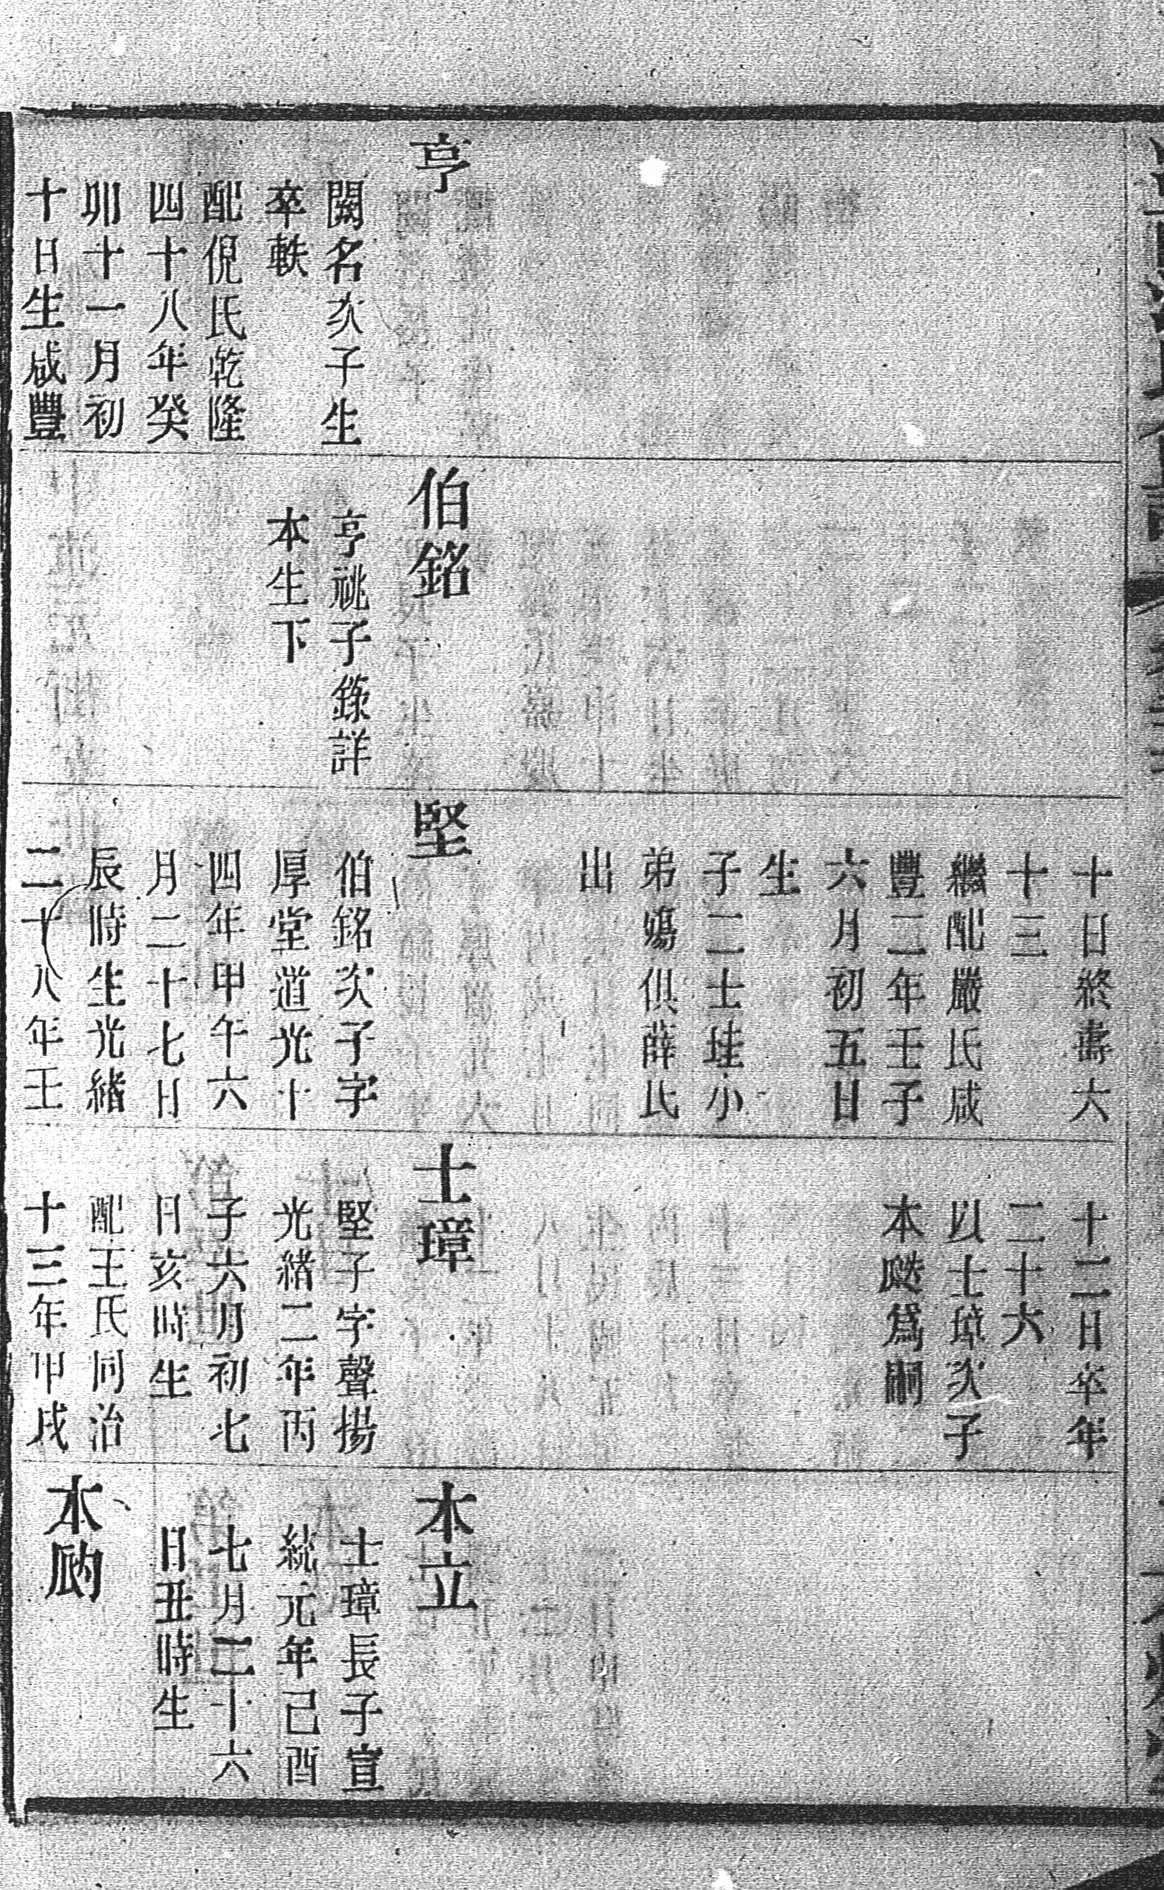 亨
闕名次子生
卒軼
配倪氏乾隆
四十八年癸
卯十一月初
十日生咸豐
伯銘
亨祧子錄詳
本生下
十日終壽六
十三
繼配嚴氏咸
豐二年壬子
六月初五日
生
子二士珪小
弟殤俱薛氏
出
堅
伯銘次子字
厚堂道光十
四年甲午六
月二十七日
辰時生光緒
二十八年壬
十二日卒年
二十六
以士璋次子
本瓞爲嗣
士璋
堅子字聲揚
光緒二年丙
子六月初七
日亥時生
配王氏同治
十三年甲戌
本立
士璋長子宣
統元年己酉
七月二十六
日丑時生
本瓝